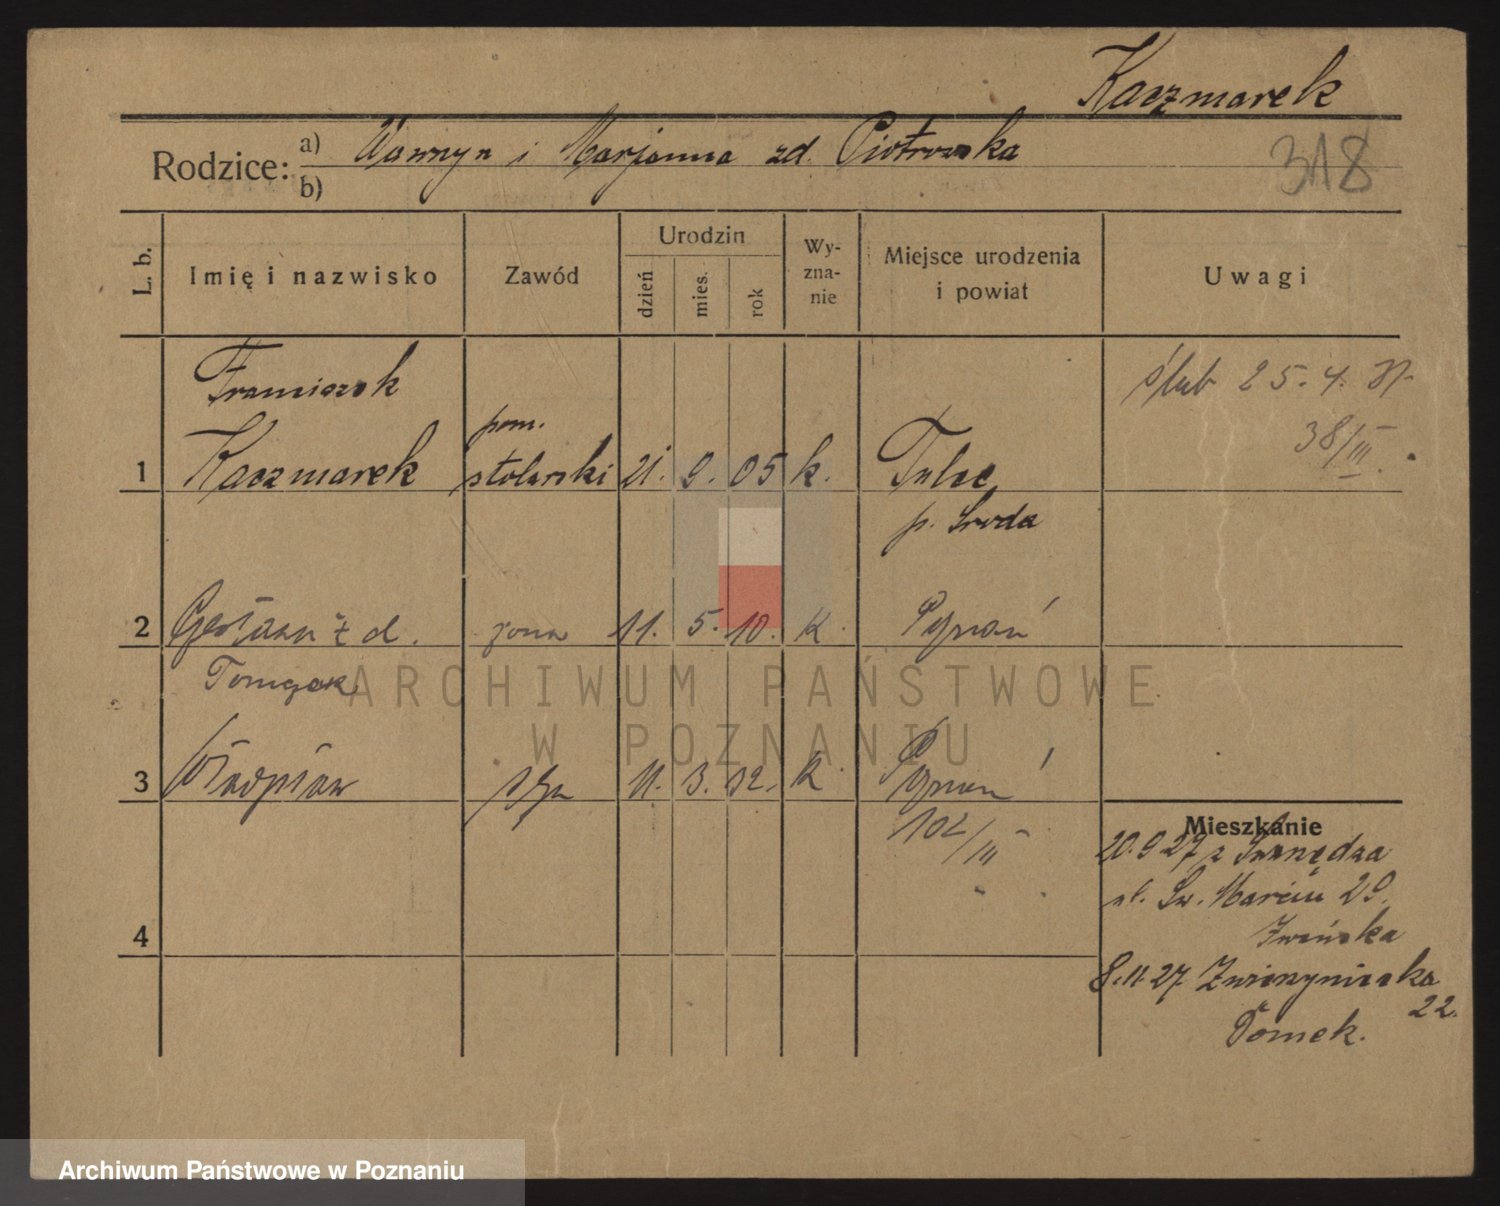 Kaczmarek
Rodzice: a) Wawrzyn i Marjanna zd. Piotrowska
b)
318
L. b.
Imię i nazwisko
Zawód
Urodzin
dzień
mies.
rok
Wy-
zna-
nie
Miejsce urodzenia
i powiat
Uwagi
Franciszek
ślub 25.4.31
38/III.
pom.
1 Kaczmarek stolarski 21. 9. 05 k. Tulce
p. Środa
2 zd. żona 11. 5. 10. k. Poznań
Tomczak
ARCHIWUM PAŃSTWOWE
W POZNANIU
3 Władysław syn 11. 3. 32. k Poznań
102/III
Mieszkanie
20.9 27 z Swarzędza
ul. Św. Marcin 29.
4
8.11.27 Zwierzyniecka
22.
Tomek.
Archiwum Państwowe w Poznaniu